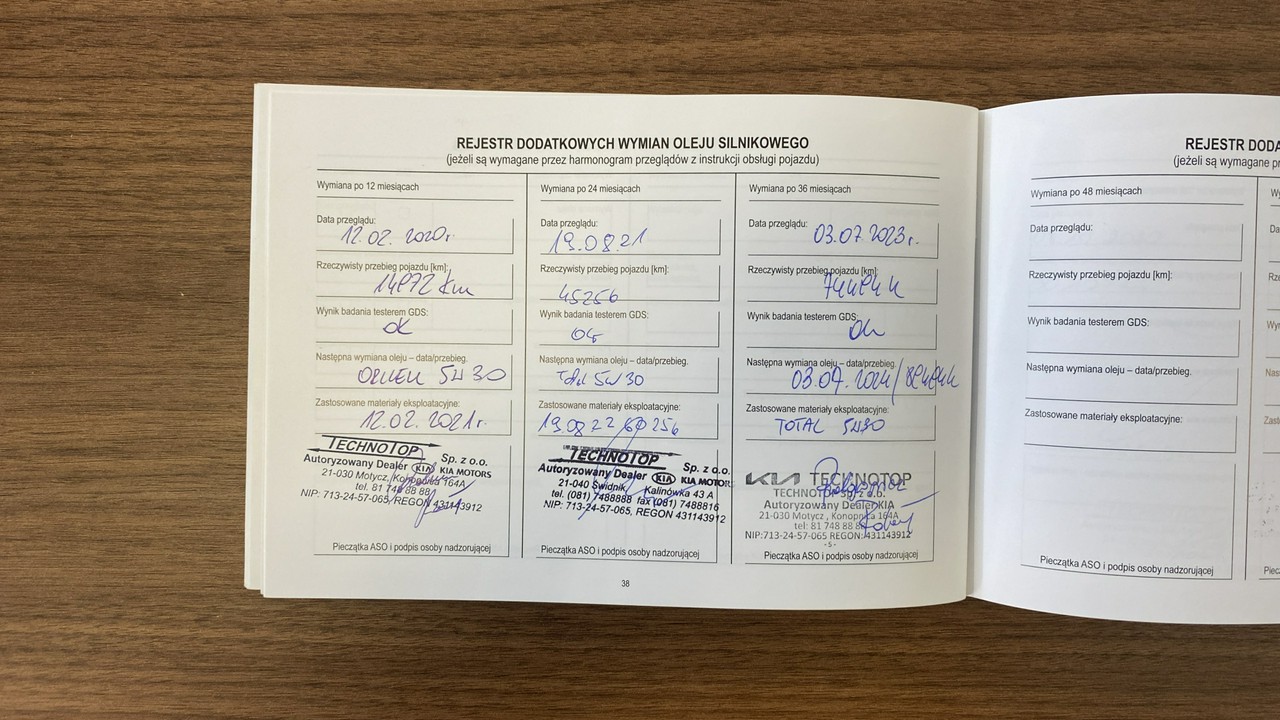 REJESTR DODATKOWYCH WYMIAN OLEJU SILNIKOWEGO
(jeżeli są wymagane przez harmonogram przeglądów z instrukcji obsługi pojazdu)
Wymiana po 12 miesiącach
Data przeglądu:
12.02.2020r.
Rzeczywisty przebieg pojazdu [km]:
14972 km
Wynik badania testerem GDS:
ok
Następna wymiana oleju – data/przebieg.
ORLEN 5W30
Zastosowane materiały eksploatacyjne:
12.02.2021r.
TECHNOTOP
Sp. z o.o.
Autoryzowany Dealer KIA KIA MOTORS
21-030 Motycz, Konopnica 164A
tel. 81 748 88 88
NIP: 713-24-57-065, REGON 431143912
Pieczątka ASO i podpis osoby nadzorującej
Wymiana po 24 miesiącach
Data przeglądu:
19.08.21
Rzeczywisty przebieg pojazdu [km]:
45256
Wynik badania testerem GDS:
Następna wymiana oleju – data/przebieg.
Total 5W30
Zastosowane materiały eksploatacyjne:
19.08.22 60256
TECHNOTOP
Sp. z o.o.
Autoryzowany Dealer KIA KIA MOTOR
21-040 Świdnik, Kalinówka 43 A
tel. (081) 7488888 fax (081) 7488816
NIP: 713-24-57-065, REGON 431143912
Pieczątka ASO i podpis osoby nadzorującej
Wymiana po 36 miesiącach
Data przeglądu:
03.07.2023r.
Rzeczywisty przebieg pojazdu [km]:
Wynik badania testerem GDS:
Ok
Następna wymiana oleju – data/przebieg.
03.07.2024/
Zastosowane materiały eksploatacyjne:
TOTAL 5W30
KIA TECHNOTOP
TECHNOTOP Sp. z o.o.
Autoryzowany Dealer KIA
21-030 Motycz, Konopnica 164A
tel: 81 748 88 8
NIP:713-24-57-065 REGON:431143912
-5-
Pieczątka ASO i podpis osoby nadzorującej
38
REJESTR DODA
(jeżeli są wymagane p
Wymiana po 48 miesiącach
Data przeglądu:
Rzeczywisty przebieg pojazdu [km]:
Wynik badania testerem GDS:
Następna wymiana oleju – data/przebieg.
Zastosowane materiały eksploatacyjne:
Pieczątka ASO i podpis osoby nadzorującej